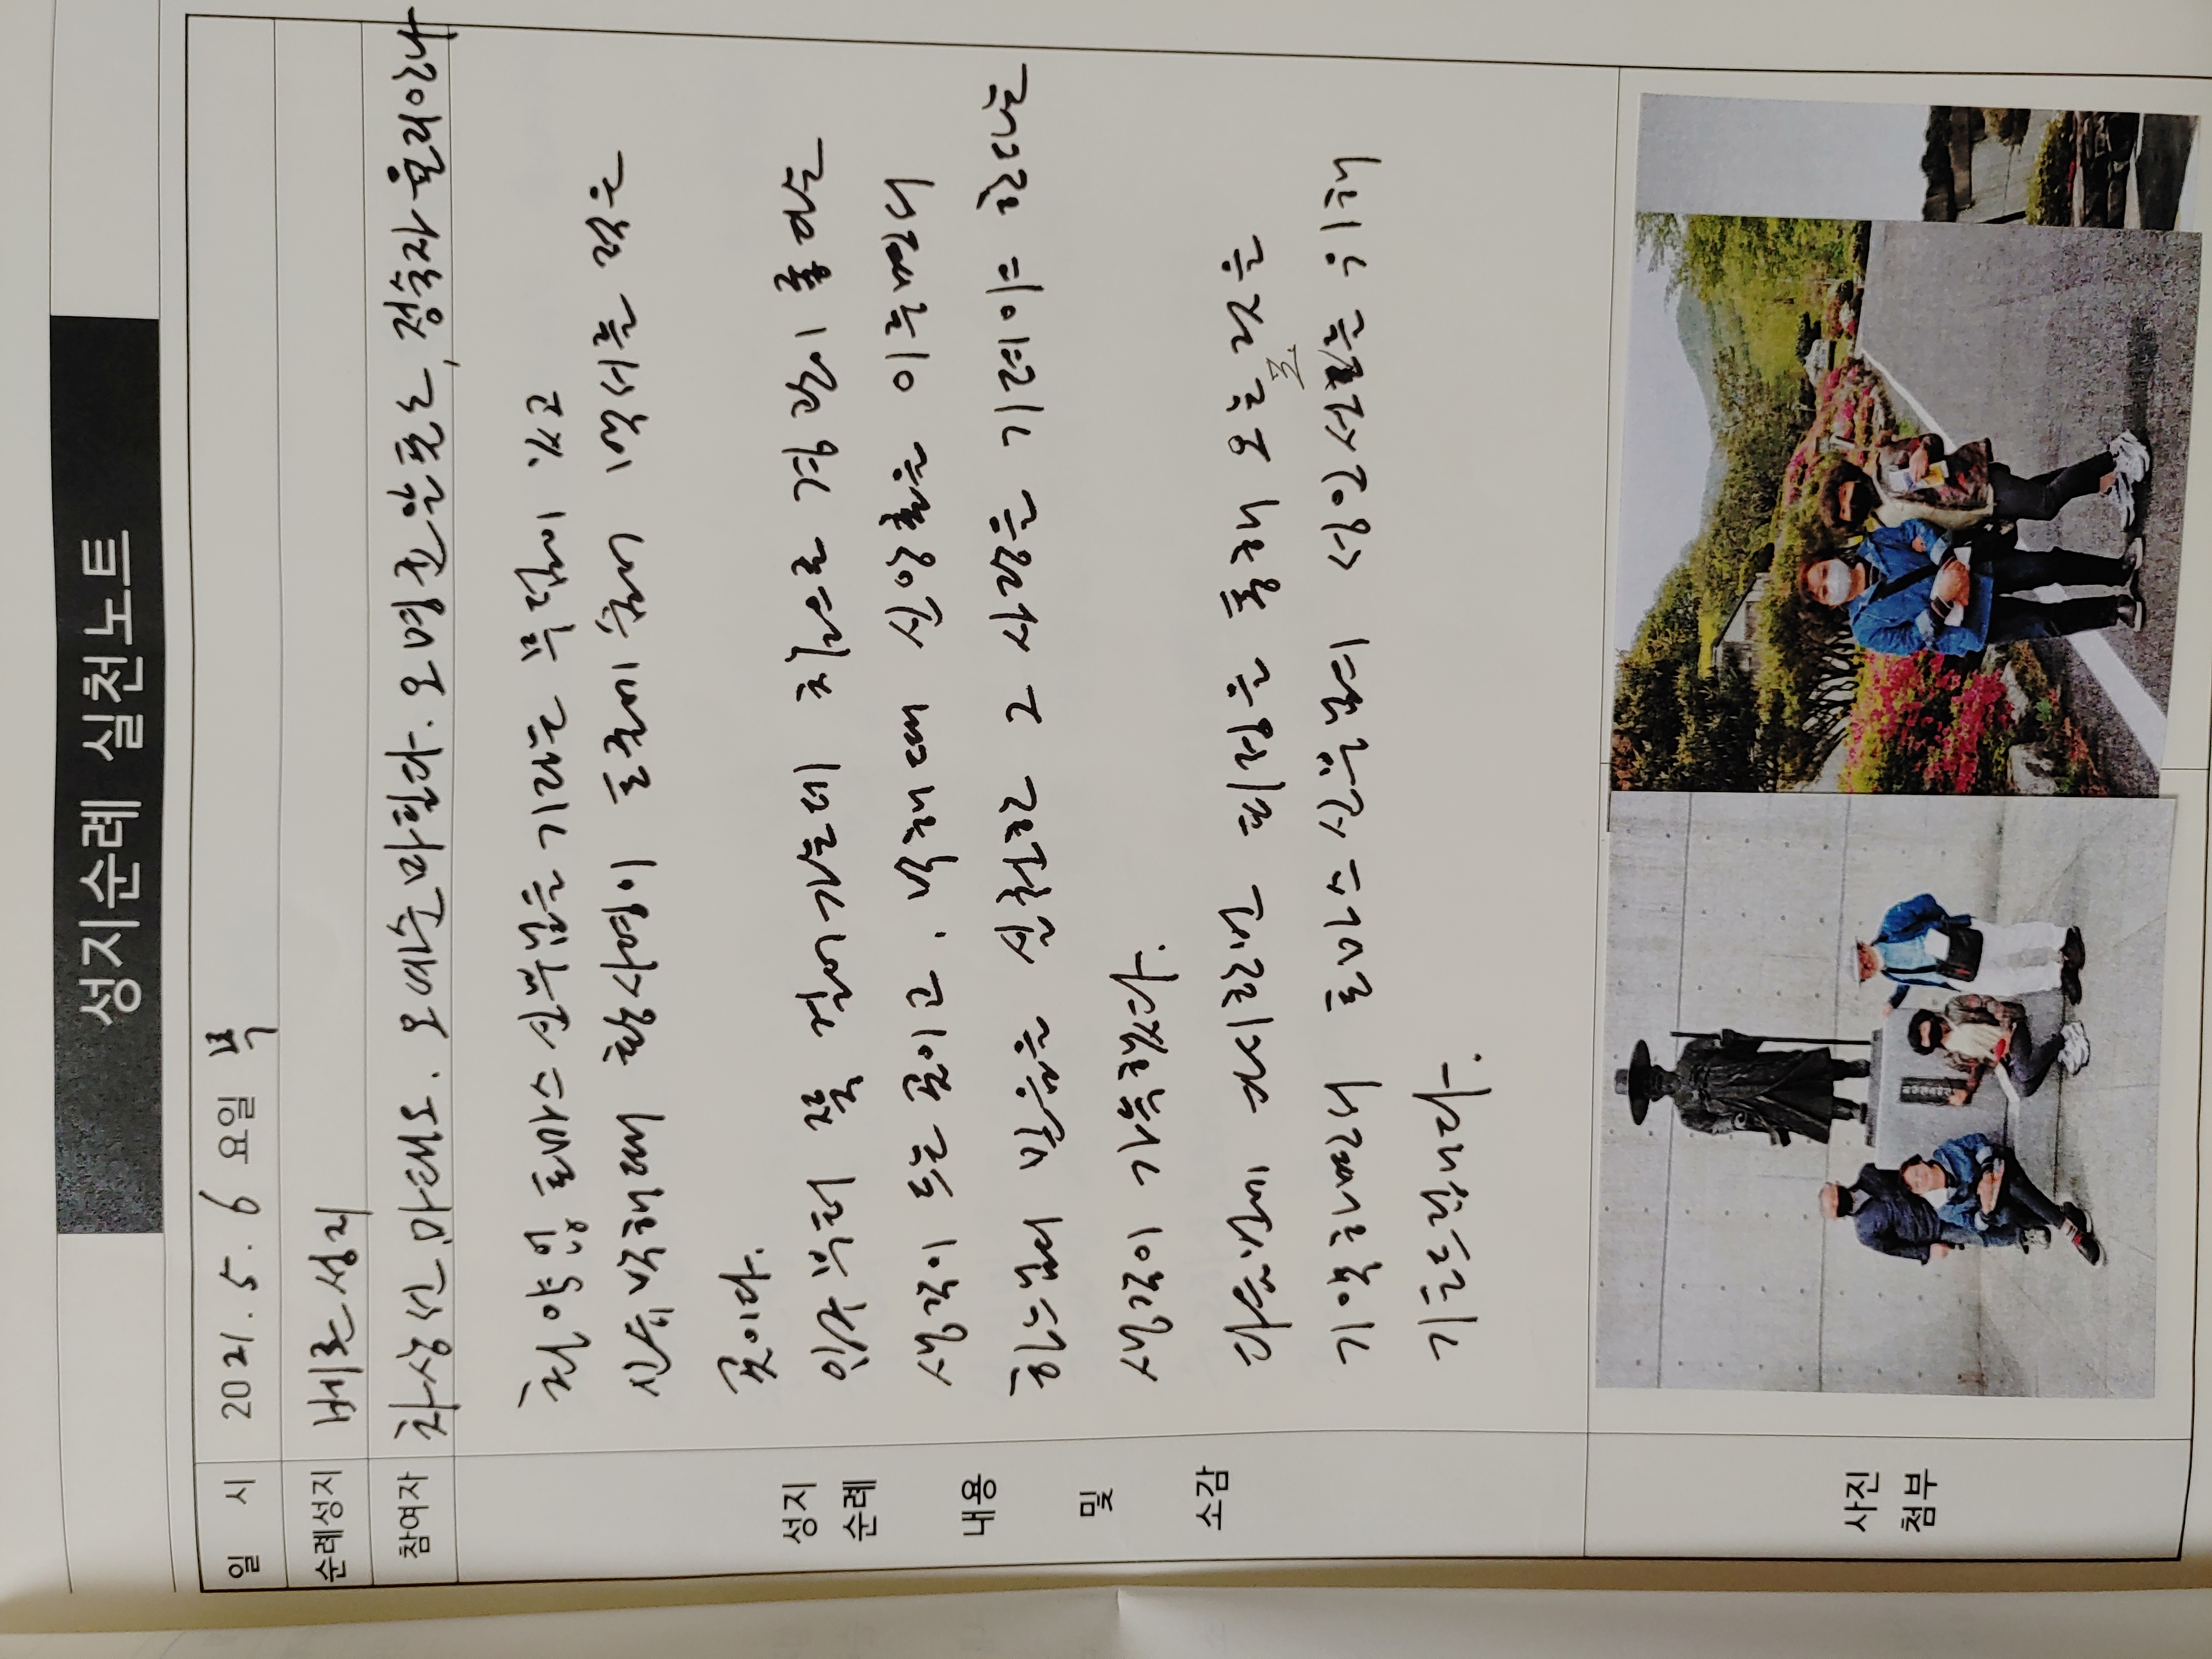 성지순례 실천노트
일 시 2021. 5. 6 요일 목
순례성지 베론성지
참여자 차상선, 마태오. 오예순마틸다. 오명균알폰소, 정숙자율리안나
최양업 토마스신부님을 기리는 무덤이 있고
신유박해때 황사영이 토굴에 숨어 백서를 적은
곳이다.
입구부터 쭉 걸어가는데 참으로 경관이 좋다는
생각이 드는 곳이고, 박해때 신앙촌을 이루면서
하느님의 믿음을 실천한 그 사랑을 기려야 한다는
생각이 가득했다.
다음번에 다시한번 피정을 통해 오는 것을
기약하면서 토마스신부님의 성인선포를 위해
기도드립니다.
성지
순례
내용
및
소감
사진
첨부